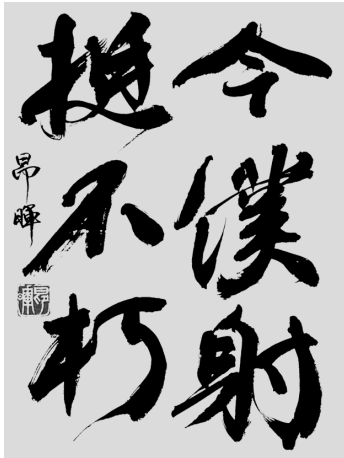 今僕射
挺不朽
昂暉